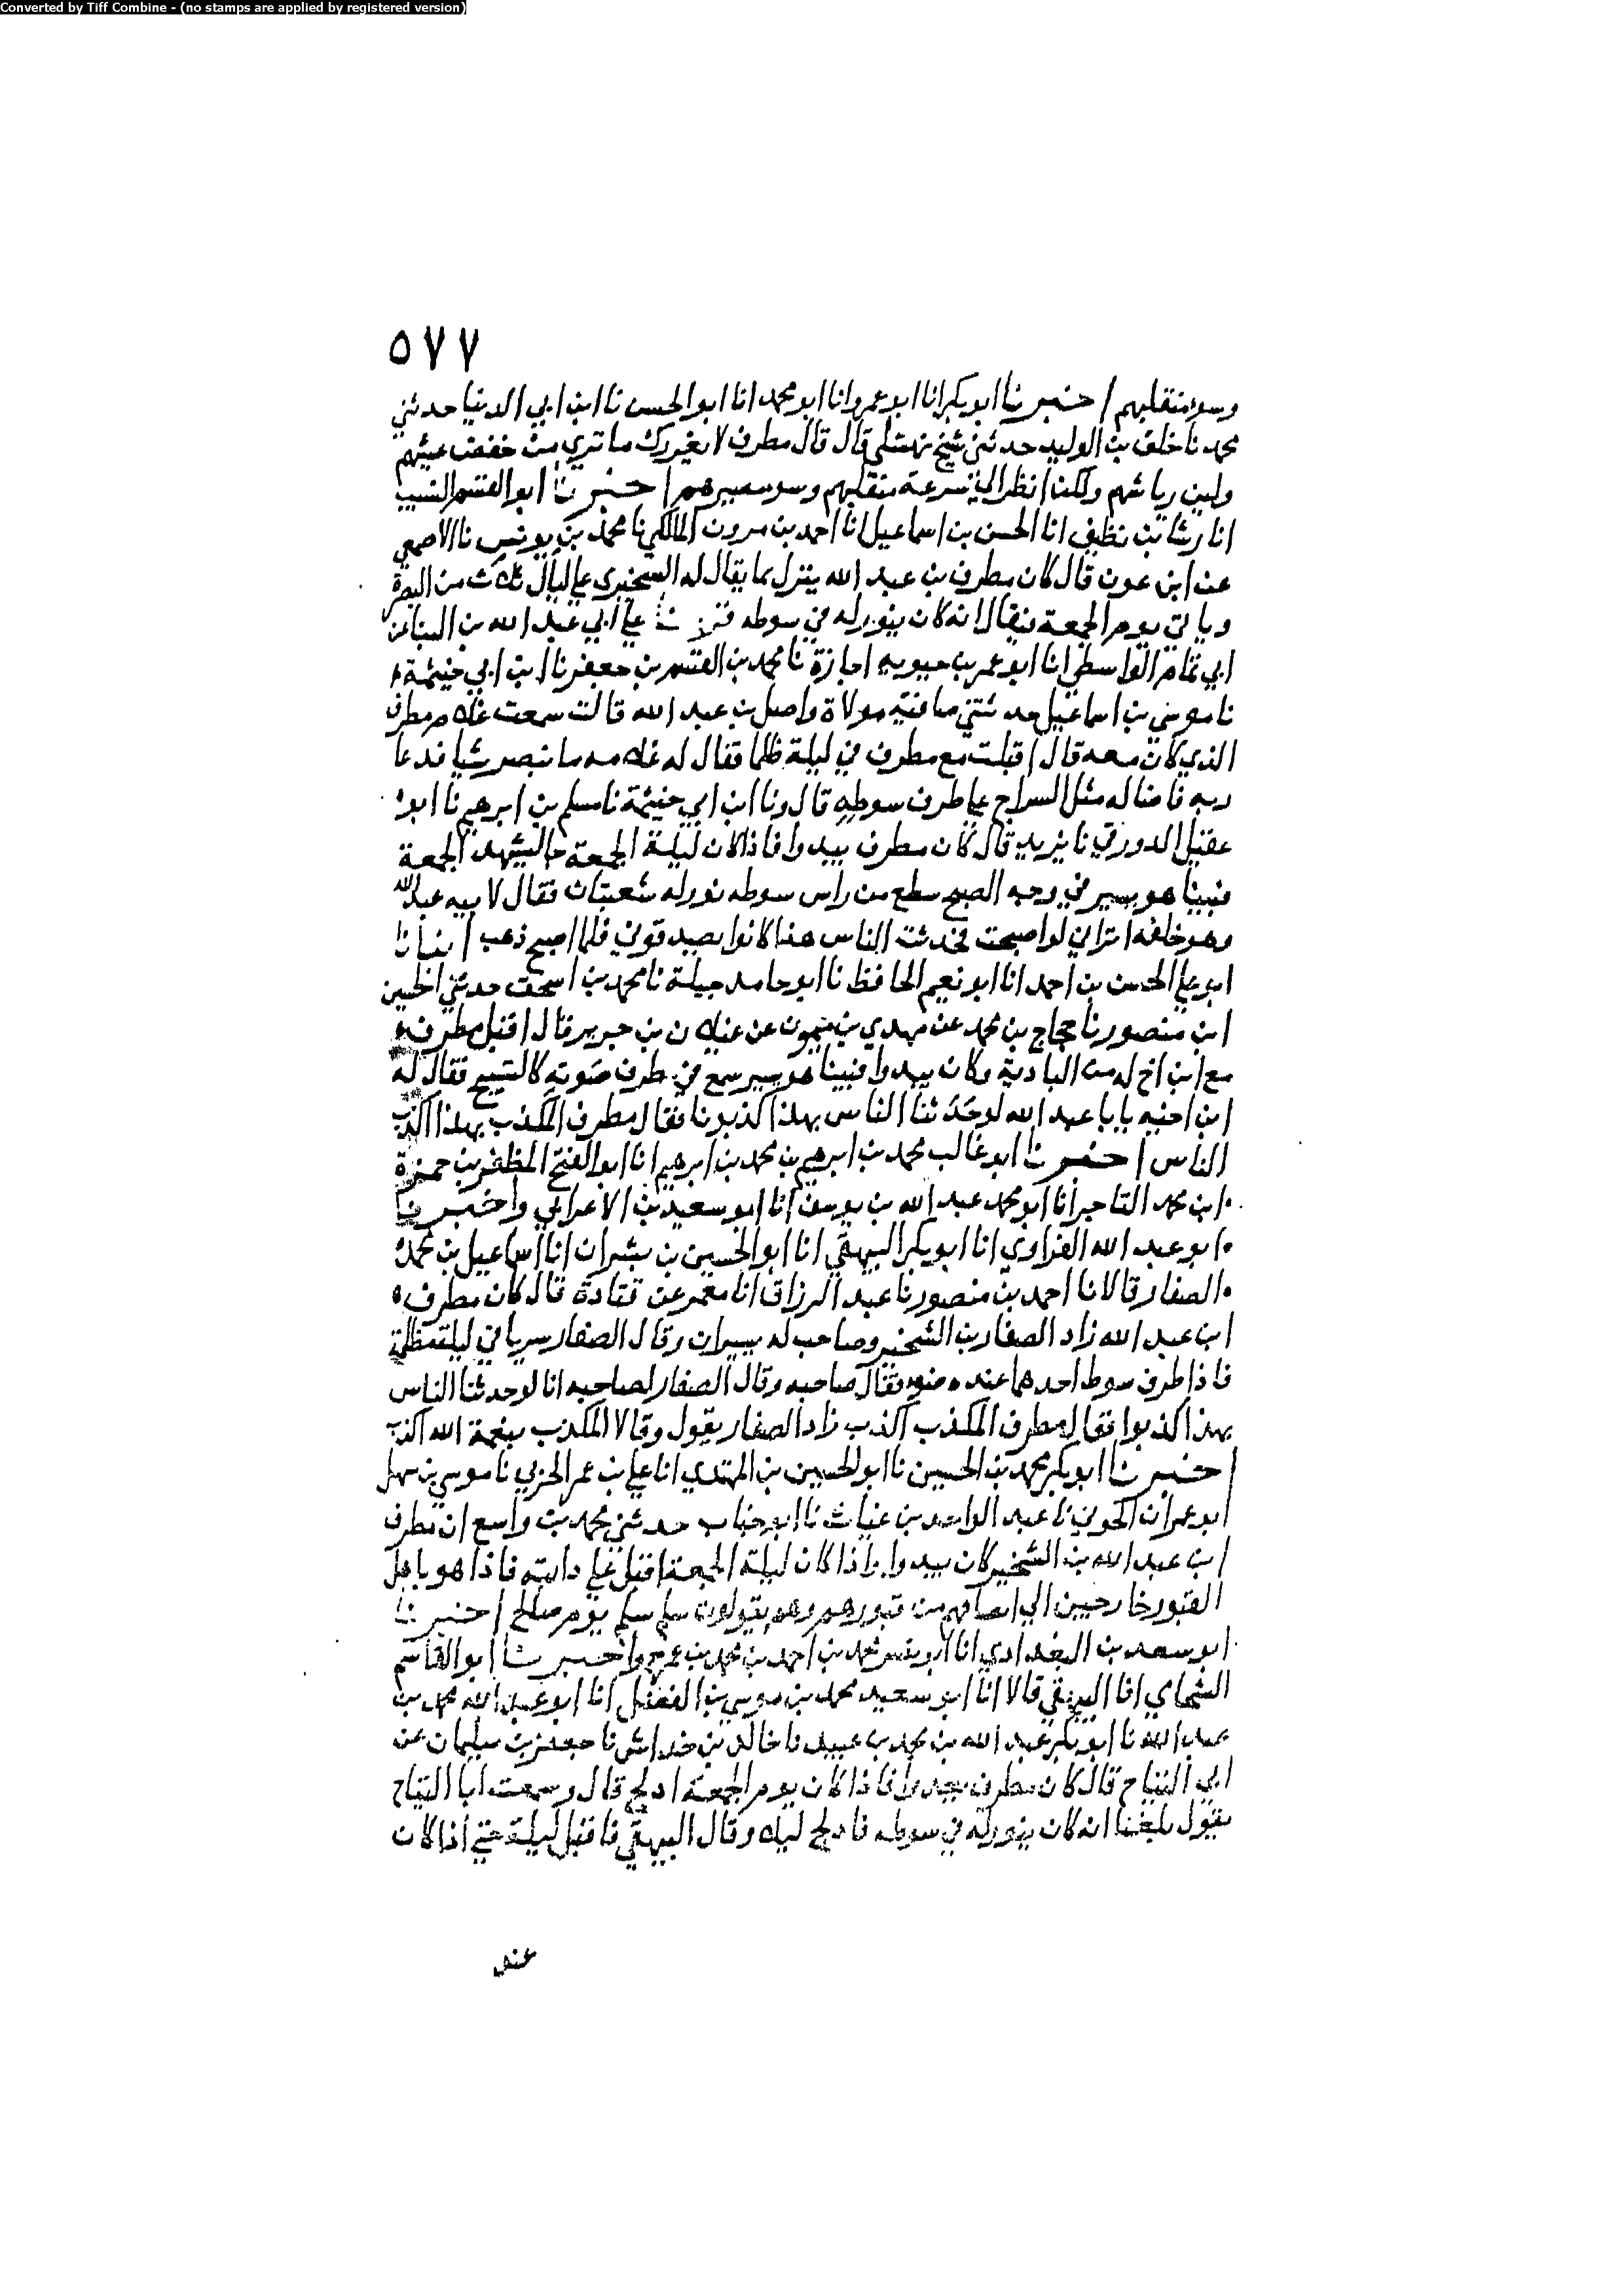 Converted by Tiff Combine - (no stamps are applied by registered version)
٥٧٧
وسو منقلبهم اخبرنا ابو بكر انا ابو عمرو انا ابو محمد انا ابو الحسن نا ابن ابي الدنيا حدثني
محمد نا خلف بن الوليد حدثني شيخ نهشلي قال قال مطرف لا يغررك ما تري من خفض عيشهم
ولين رياشهم ولكن انظر الي سرعة منقلبهم وسو مصيرهم اخبرنا ابو القسم النسيب
انا رشا بن نظيف انا الحسن بن اسماعيل انا احمد بن مرون المالكي نا محمد بن يونس نا الاصمعي
عن ابن عون قال كان مطرف بن عبد الله ينزل بما يقال له الشخيري علي ليال ثلاث من البصرة
وياتي يوم الجمعة فيقال انه كان ينور له في سوطه قرات علي ابي عبد الله بن البنا عن
ابي تمام الواسطي انا ابو عمر بن حيويه اجازة نا محمد بن القسم بن جعفر نا ابن ابي خيثمة
نا موسي بن اسماعيل حدثتني صافية مولاة واصل بن عبد الله قالت سمعت غلام مطرف
الذي كان معه قال اقبلت مع مطرف في ليلة ظلما فقال له غلامه ما نبصر شيا فدعا
ربه فاضا له مثل السراج علي طرف سوطه قال ونا ابن ابي خيثمة نا مسلم بن ابرهيم نا ابو
عقيل الدورقي نا يزيد قال كان مطرف يبدوا فاذا كان ليلة الجمعة جا ليشهد الجمعة
فبينا هو يسير في وجه الصبح سطع من راس سوطه نور له شعبتان فقال لابيه عبد الله
وهو خلفه اتراني لو اصبحت فحدثت الناس هذا كانوا يصدقوني فلما اصبح ذهب انبانا
ابو علي الحسن بن احمد انا ابو نعيم الحافظ نا ابو حامد جبلة نا محمد بن اسحق حدثني الحسين
ابن منصور نا حجاج بن محمد عن مهدي بن ميمون عن غيلان بن جرير قال اقبل مطرف
مع ابن اخ له من البادية وكان يبدوا فبينا هو يسير سمع في طرف صوته كالتسبيح فقال له
ابن اخيه يا با عبد الله لو حدثنا الناس بهذا كذبونا فقال مطرف المكذب بهذا اكذب
الناس اخبرنا ابو غالب محمد بن ابرهيم بن محمد بن ابرهيم انا ابو الفتح المظفر بن حمزة
ابن محمد التاجر انا ابو محمد عبد الله بن يوسف انا ابو سعيد بن الاعرابي واخبرنا
ابو عبد الله الفراوي انا ابو بكر البيهقي انا ابو الحسين بن بشران انا اسماعيل بن محمد
الصفار قالا نا احمد بن منصور نا عبد الرزاق انا معمر عن قتادة قال كان مطرف
ابن عبد الله زاد الصفار بن الشخير وصاحب له يسيران وقال الصفار سريا في ليلة مظلمة
فاذا طرف سوط احدهما عنده ضوء فقال صاحبه وقال الصفار لصاحبه انا لو حدثنا الناس
بهذا كذبوا فقال مطرف المكذب اكذب زاد الصفار يقول وقالا المكذب بنعمة الله اكذب
اخبرنا ابو بكر محمد بن الحسين نا ابو الحسين بن المهتدي انا علي بن عمر الحربي نا موسي بن سهل
ابو عمران الجوني نا عبد الواحد بن غياث نا ابو جناب حدثني محمد بن واسع ان مطرف
ابن عبد الله بن الشخير كان يبدوا واذا كان ليلة الجمعة اقبل علي دابته فاذا هو باهل
القبور خارجين الي انصافهم من قبورهم وهم يقولون سلم سلم يوم صالح اخبرنا
ابو سعد بن البغدادي انا ابو نصر محمد بن احمد بن محمد بن عمر واخبرنا ابو القاسم
الشحامي انا البيهقي قالا انا ابو سعيد محمد بن موسي بن الفضل انا ابو عبد الله محمد بن
عبد الله نا ابو بكر عبد الله بن محمد بن عبيد نا خالد بن خداش نا جعفر بن سليمان عن
ابي التياح قال كان مطرف يبدوا فاذا كان يوم الجمعة ادلج قال وسمعت ابا التياح
يقول بلغنا انه كان ينور له في سوطه فادلج ليلة وقال البيهقي فاقبل ليلة حتي اذا كان
عند